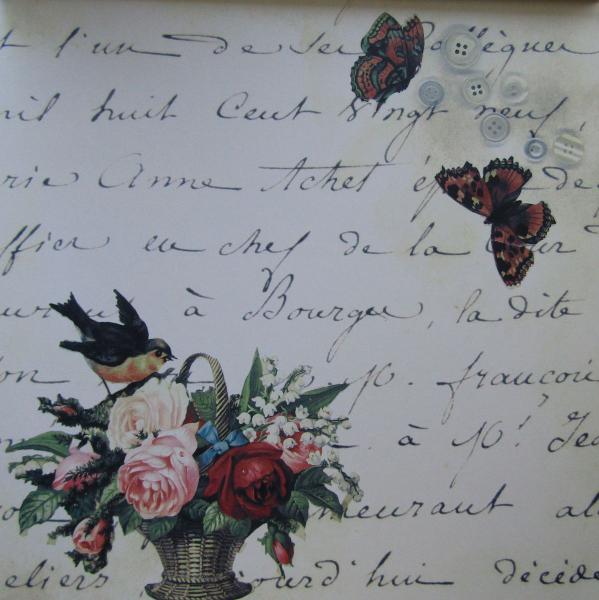 t l'un de ses Collègues
ril huit Cent Vingt neuf,
rie Anne Achet é de
ffier en chef de la Cour
à Bourges, la dite
on p. françois
à Mr. Jea
meurant al
eliers, aujourd'hui décédé